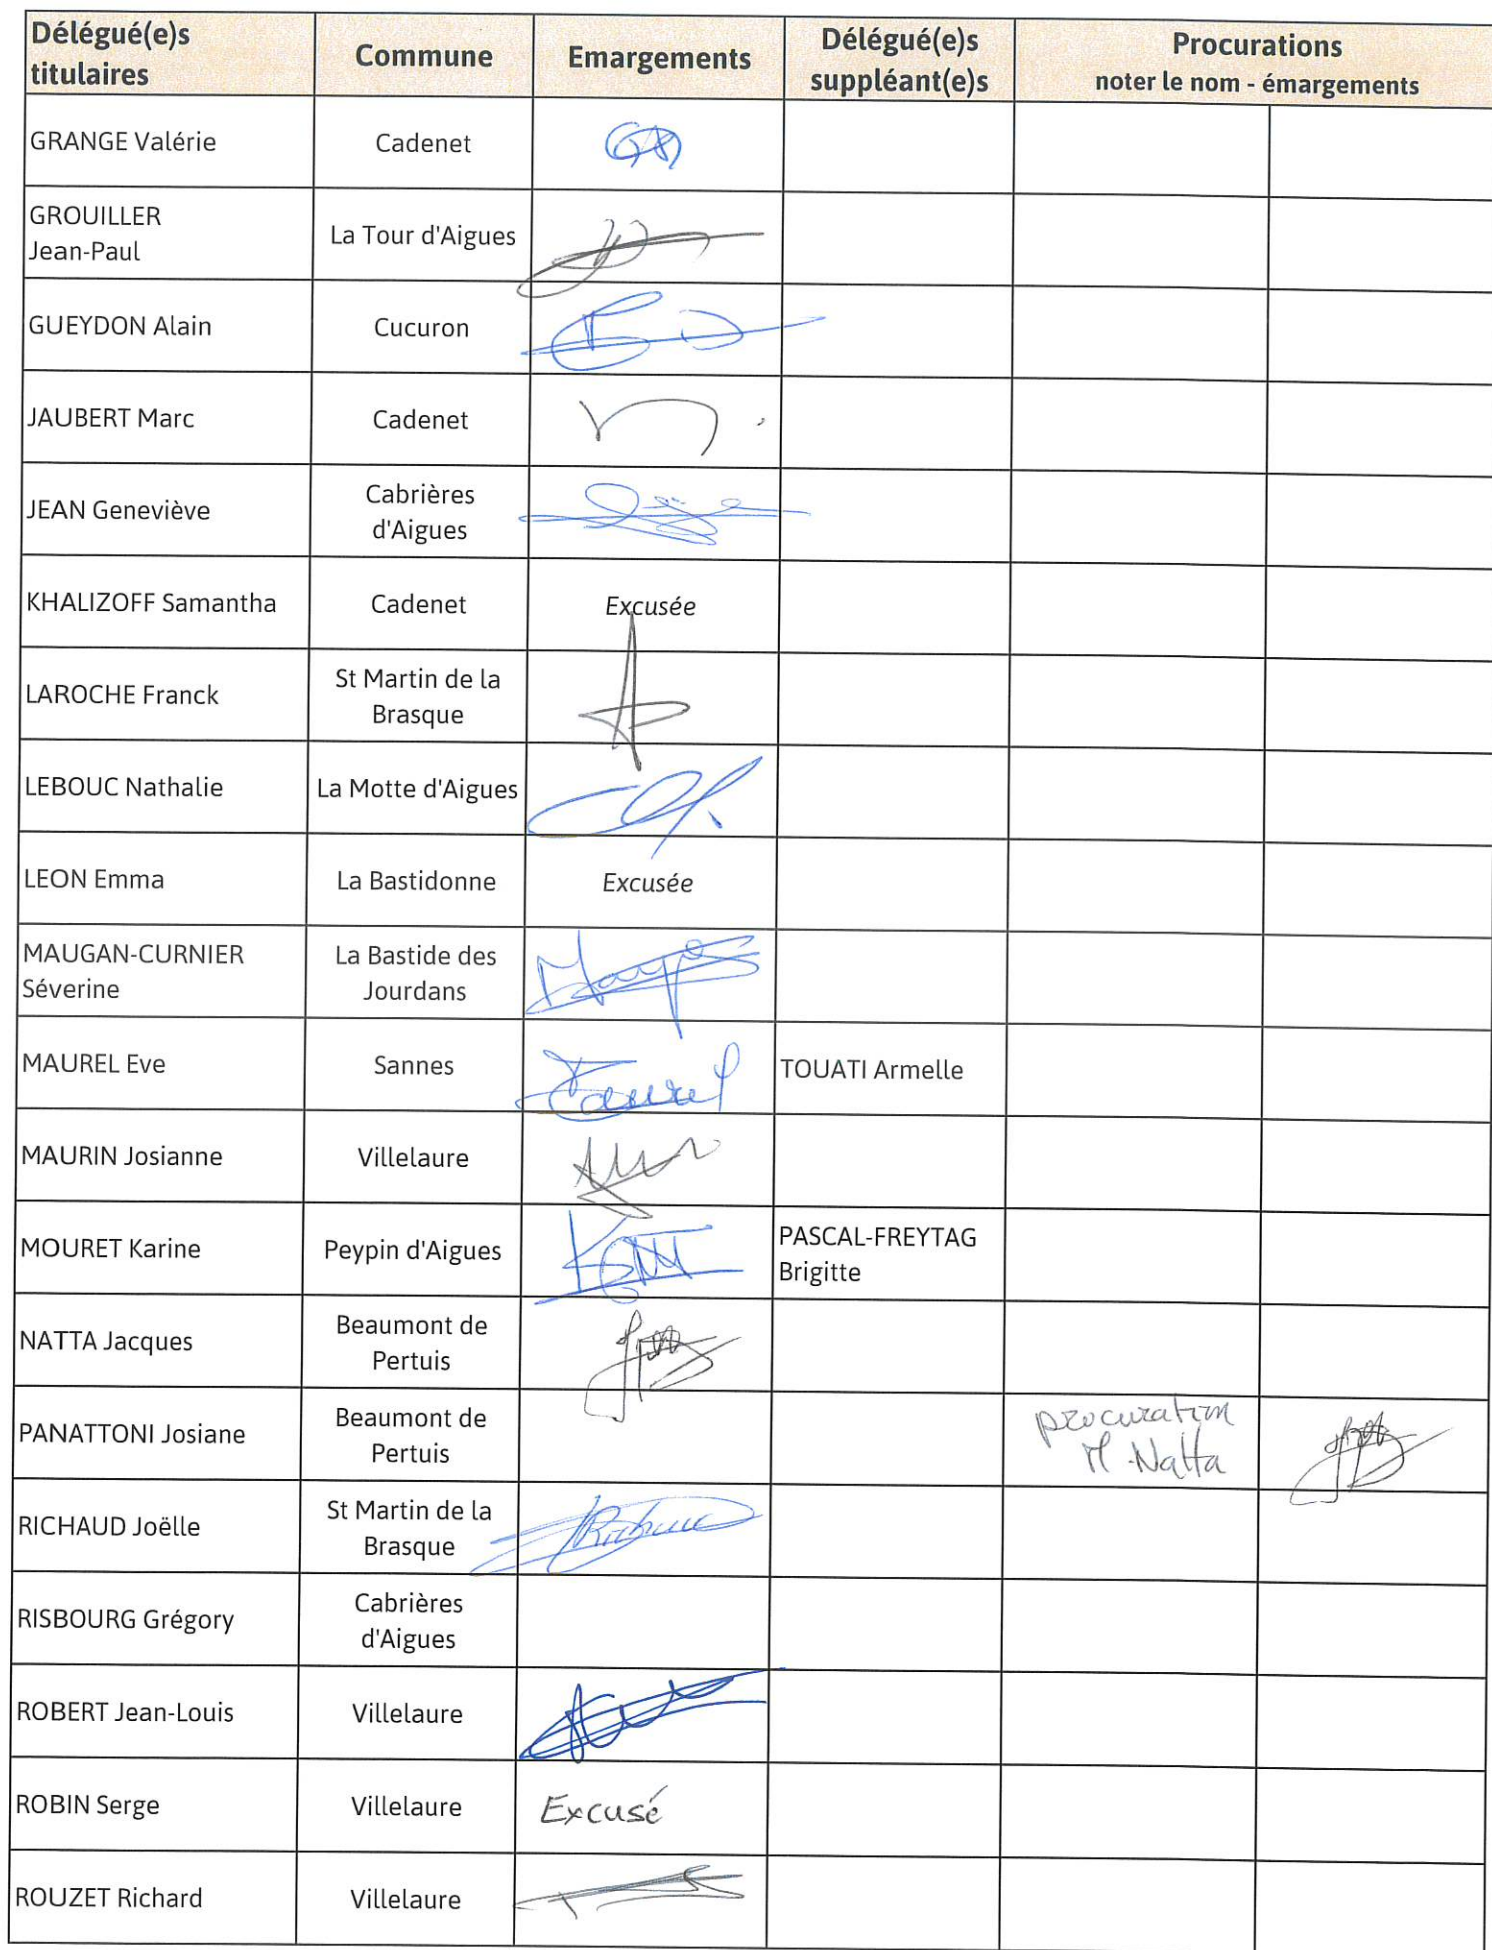 Délégué(e)s
titulaires
Commune
Emargements
Délégué(e)s
suppléant(e)s
Procurations
noter le nom - émargements
GRANGE Valérie
Cadenet
GROUILLER
Jean-Paul
La Tour d'Aigues
GUEYDON Alain
Cucuron
JAUBERT Marc
Cadenet
JEAN Geneviève
Cabrières
d'Aigues
KHALIZOFF Samantha
Cadenet
Excusée
LAROCHE Franck
St Martin de la
Brasque
LEBOUC Nathalie
La Motte d'Aigues
LEON Emma
La Bastidonne
Excusée
MAUGAN-CURNIER
Séverine
La Bastide des
Jourdans
MAUREL Eve
Sannes
TOUATI Armelle
MAURIN Josianne
Villelaure
MOURET Karine
Peypin d'Aigues
PASCAL-FREYTAG
Brigitte
NATTA Jacques
Beaumont de
Pertuis
PANATTONI Josiane
Beaumont de
Pertuis
procuration
M. Natta
RICHAUD Joëlle
St Martin de la
Brasque
RISBOURG Grégory
Cabrières
d'Aigues
ROBERT Jean-Louis
Villelaure
ROBIN Serge
Villelaure
Excusé
ROUZET Richard
Villelaure